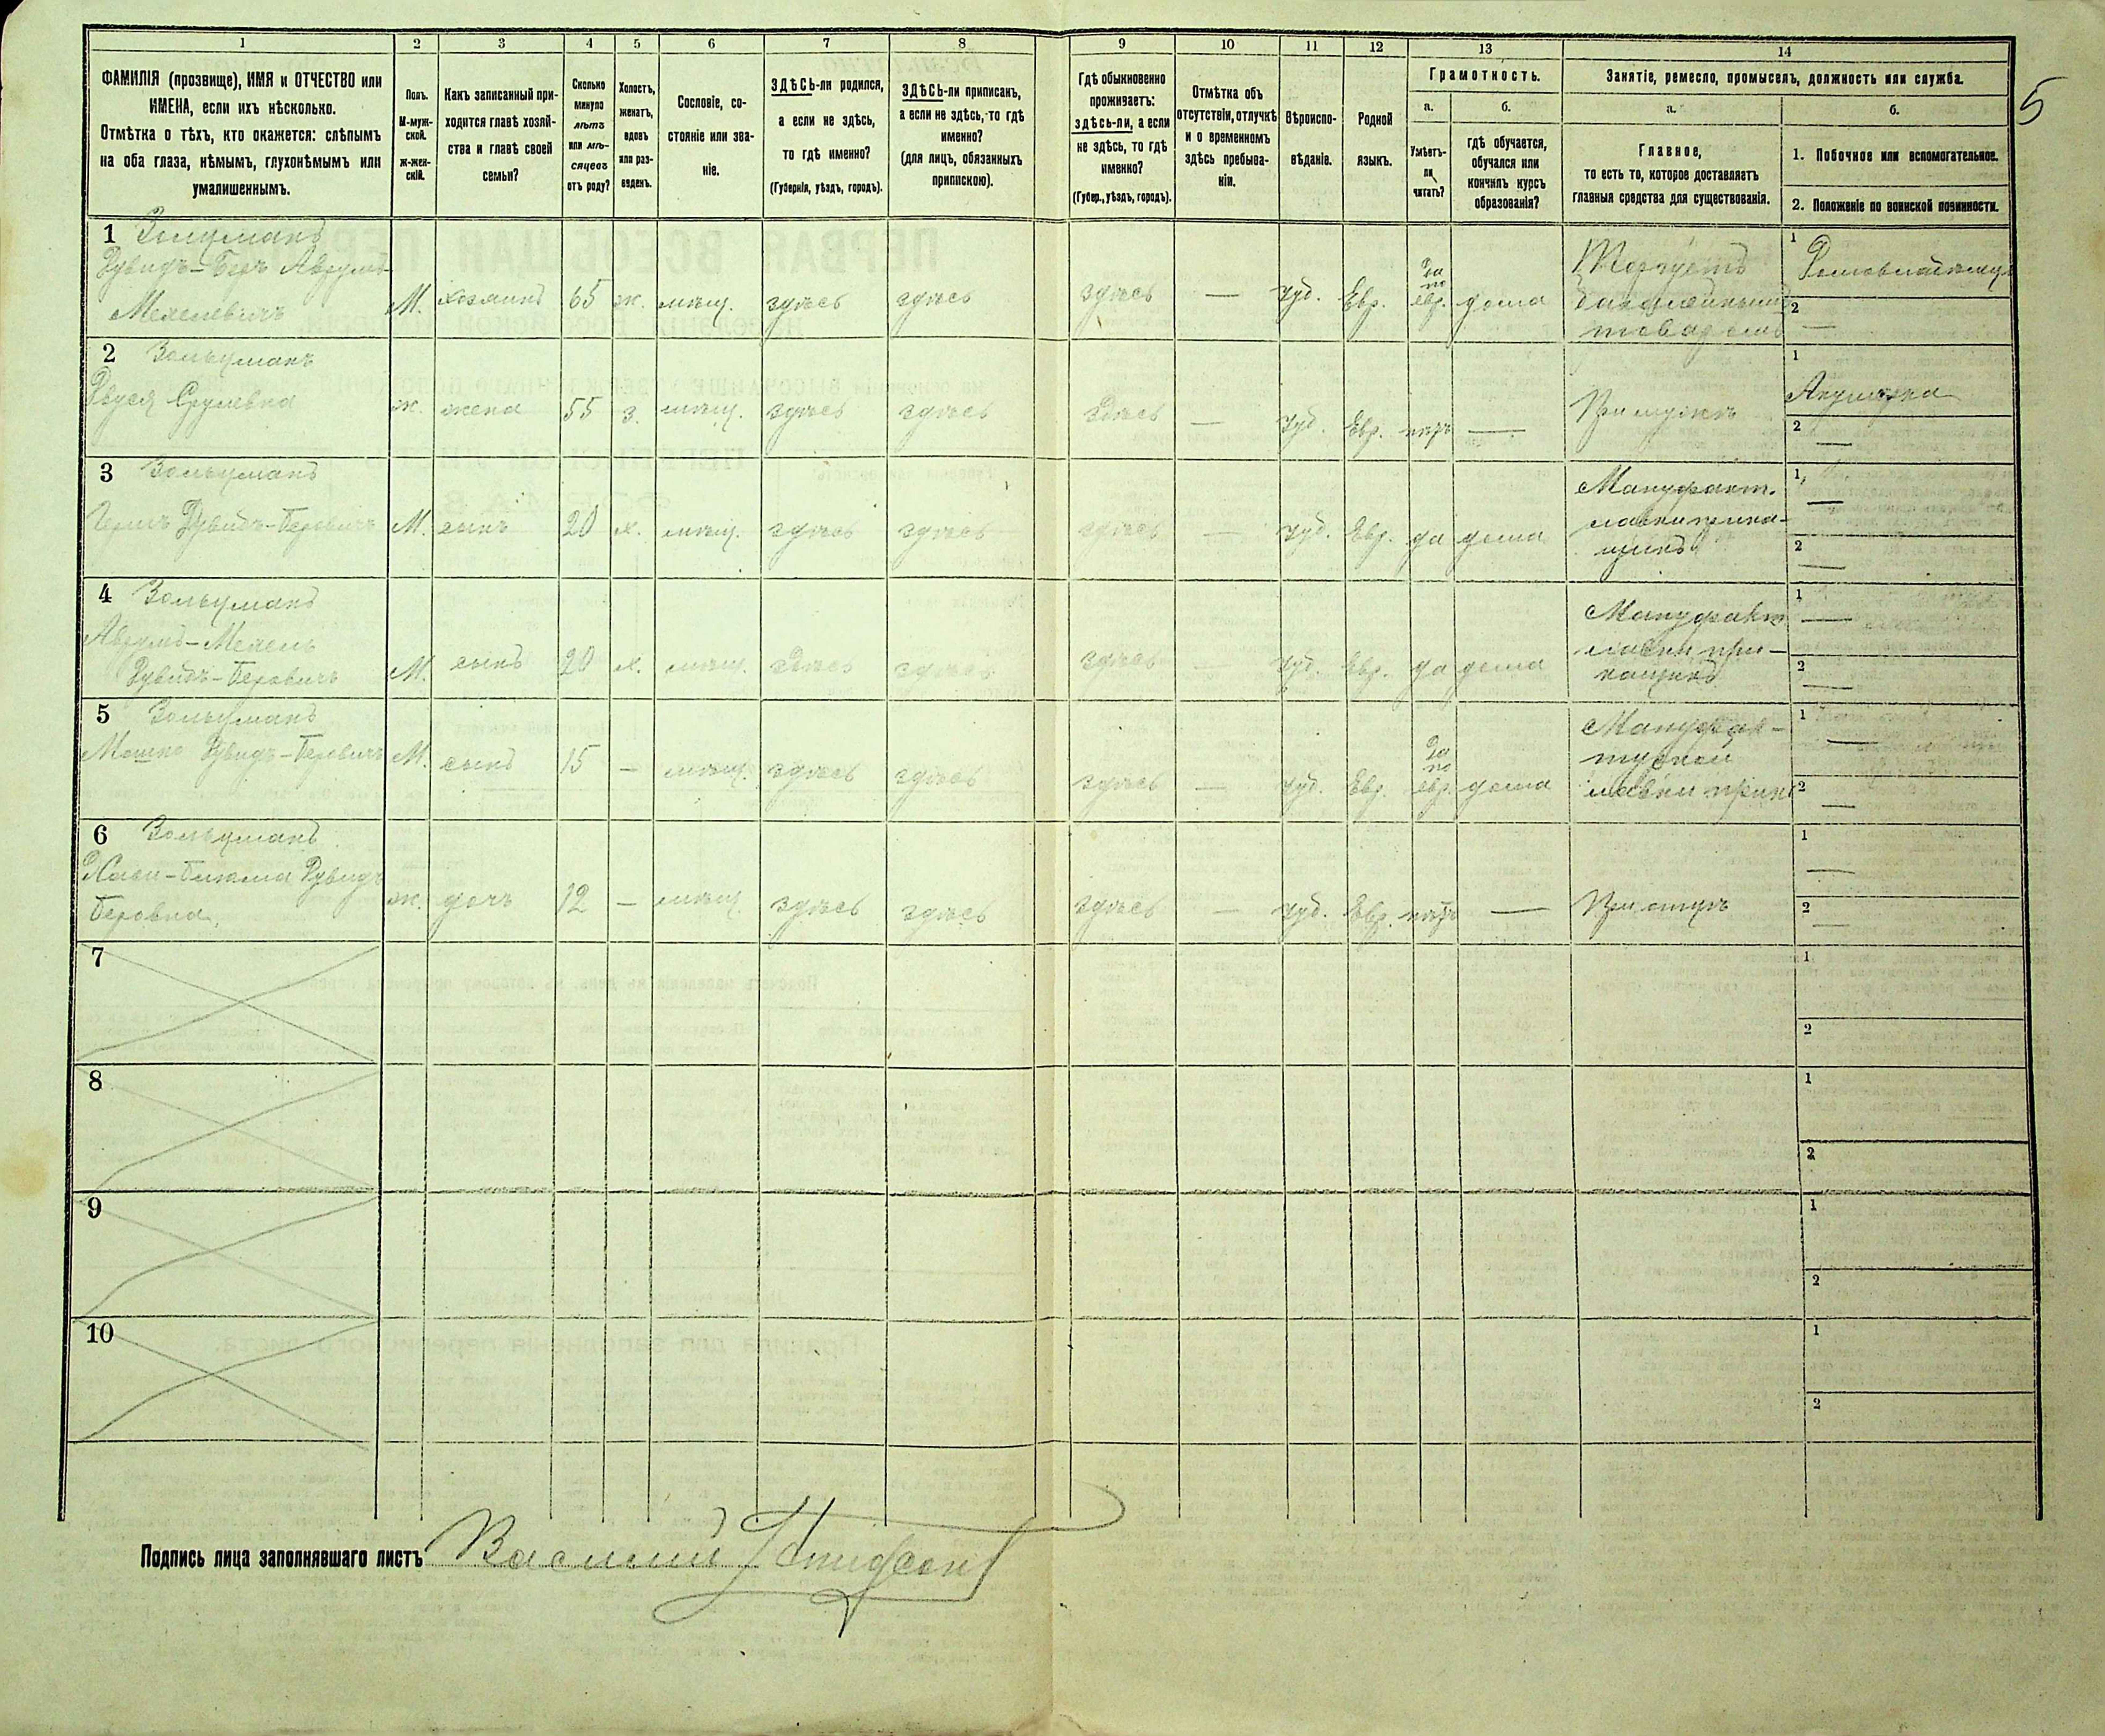 1 2 3 4 5 6 7 8 9 10 11 12 13 14
5
ФАМИЛІЯ (прозвище), ИМЯ и ОТЧЕСТВО или
ИМЕНА, если ихъ нѣсколько.
Отмѣтка о тѣхъ, кто окажется: слѣпымъ
на оба глаза, нѣмымъ, глухонѣмымъ или
умалишеннымъ.
Полъ.
М-муж-
ской.
Ж-жен-
скій.
Какъ записанный при-
ходится главѣ хозяй-
ства и главѣ своей
семьи?
Сколько
минуло
лѣтъ
или мѣ-
сяцевъ
отъ роду?
Холостъ,
женатъ,
вдовъ
или раз-
веденъ.
Сословіе, со-
стояніе или зва-
ніе.
ЗДѢСЬ-ли родился,
а если не здѣсь,
то гдѣ именно?
(Губернія, уѣздъ, городъ).
ЗДѢСЬ-ли приписанъ,
а если не здѣсь, то гдѣ
именно?
(для лицъ, обязанныхъ
припискою).
Гдѣ обыкновенно
проживаетъ:
здѣсь-ли, а если
не здѣсь, то гдѣ
именно?
(Губер., уѣздъ, городъ).
Отмѣтка объ
отсутствіи, отлучкѣ
и о временномъ
здѣсь пребыва-
ніи.
Вѣроиспо-
вѣданіе.
Родной
языкъ.
Грамотность.
а.
Умѣетъ-
ли
читать?
б.
гдѣ обучается,
обучался или
кончилъ курсъ
образованія?
Занятіе, ремесло, промыселъ, должность или служба.
а.
Главное,
то есть то, которое доставляетъ
главныя средства для существованія.
б.
1. Побочное или вспомогательное.
2. Положеніе по воинской повинности.
1 Зольцманъ
Дувидъ-Беръ Аврумъ-
Мехелевичъ
М. хозяинъ 65 ж. мѣщ. здѣсь здѣсь здѣсь — Іуд. Евр.
Да
по
евр. дома
Торгуетъ
бакалейнымъ
товаромъ
1
2 —
2 Зольцманъ
Двуся Срулевна
ж. жена 55 з. мѣщ. здѣсь здѣсь здѣсь — Іуд. Евр. нѣтъ —
При мужѣ
1 Акушерка
2 —
3 Зольцманъ
Гершъ Дувидъ-Беровичъ
М. сынъ 20 х. мѣщ. здѣсь здѣсь здѣсь — Іуд. Евр. да дома
Мануфакт.
лавки прика-
щикъ
1 —
2 —
4 Зольцманъ
Аврумъ-Мехель
Дувидъ-Беровичъ
М. сынъ 20 х. мѣщ. здѣсь здѣсь здѣсь — Іуд. Евр. да дома
Мануфакт
лавки при-
кащикъ
1 —
2 —
5 Зольцманъ
Мошко Дувидъ-Беровичъ
М. сынъ 15 — мѣщ. здѣсь здѣсь здѣсь — Іуд. Евр.
Да
по
евр. дома
Мануфак-
турной
лавки прик
1 —
2 —
6 Зольцманъ
Дувидъ
Беровна
ж. дочь 12 — мѣщ. здѣсь здѣсь здѣсь — Іуд. Евр. нѣтъ —
При отцѣ
1 —
2 —
7
1
2
8
1
2
9
1
2
10
1
2
Подпись лица заполнявшаго листъ Василий